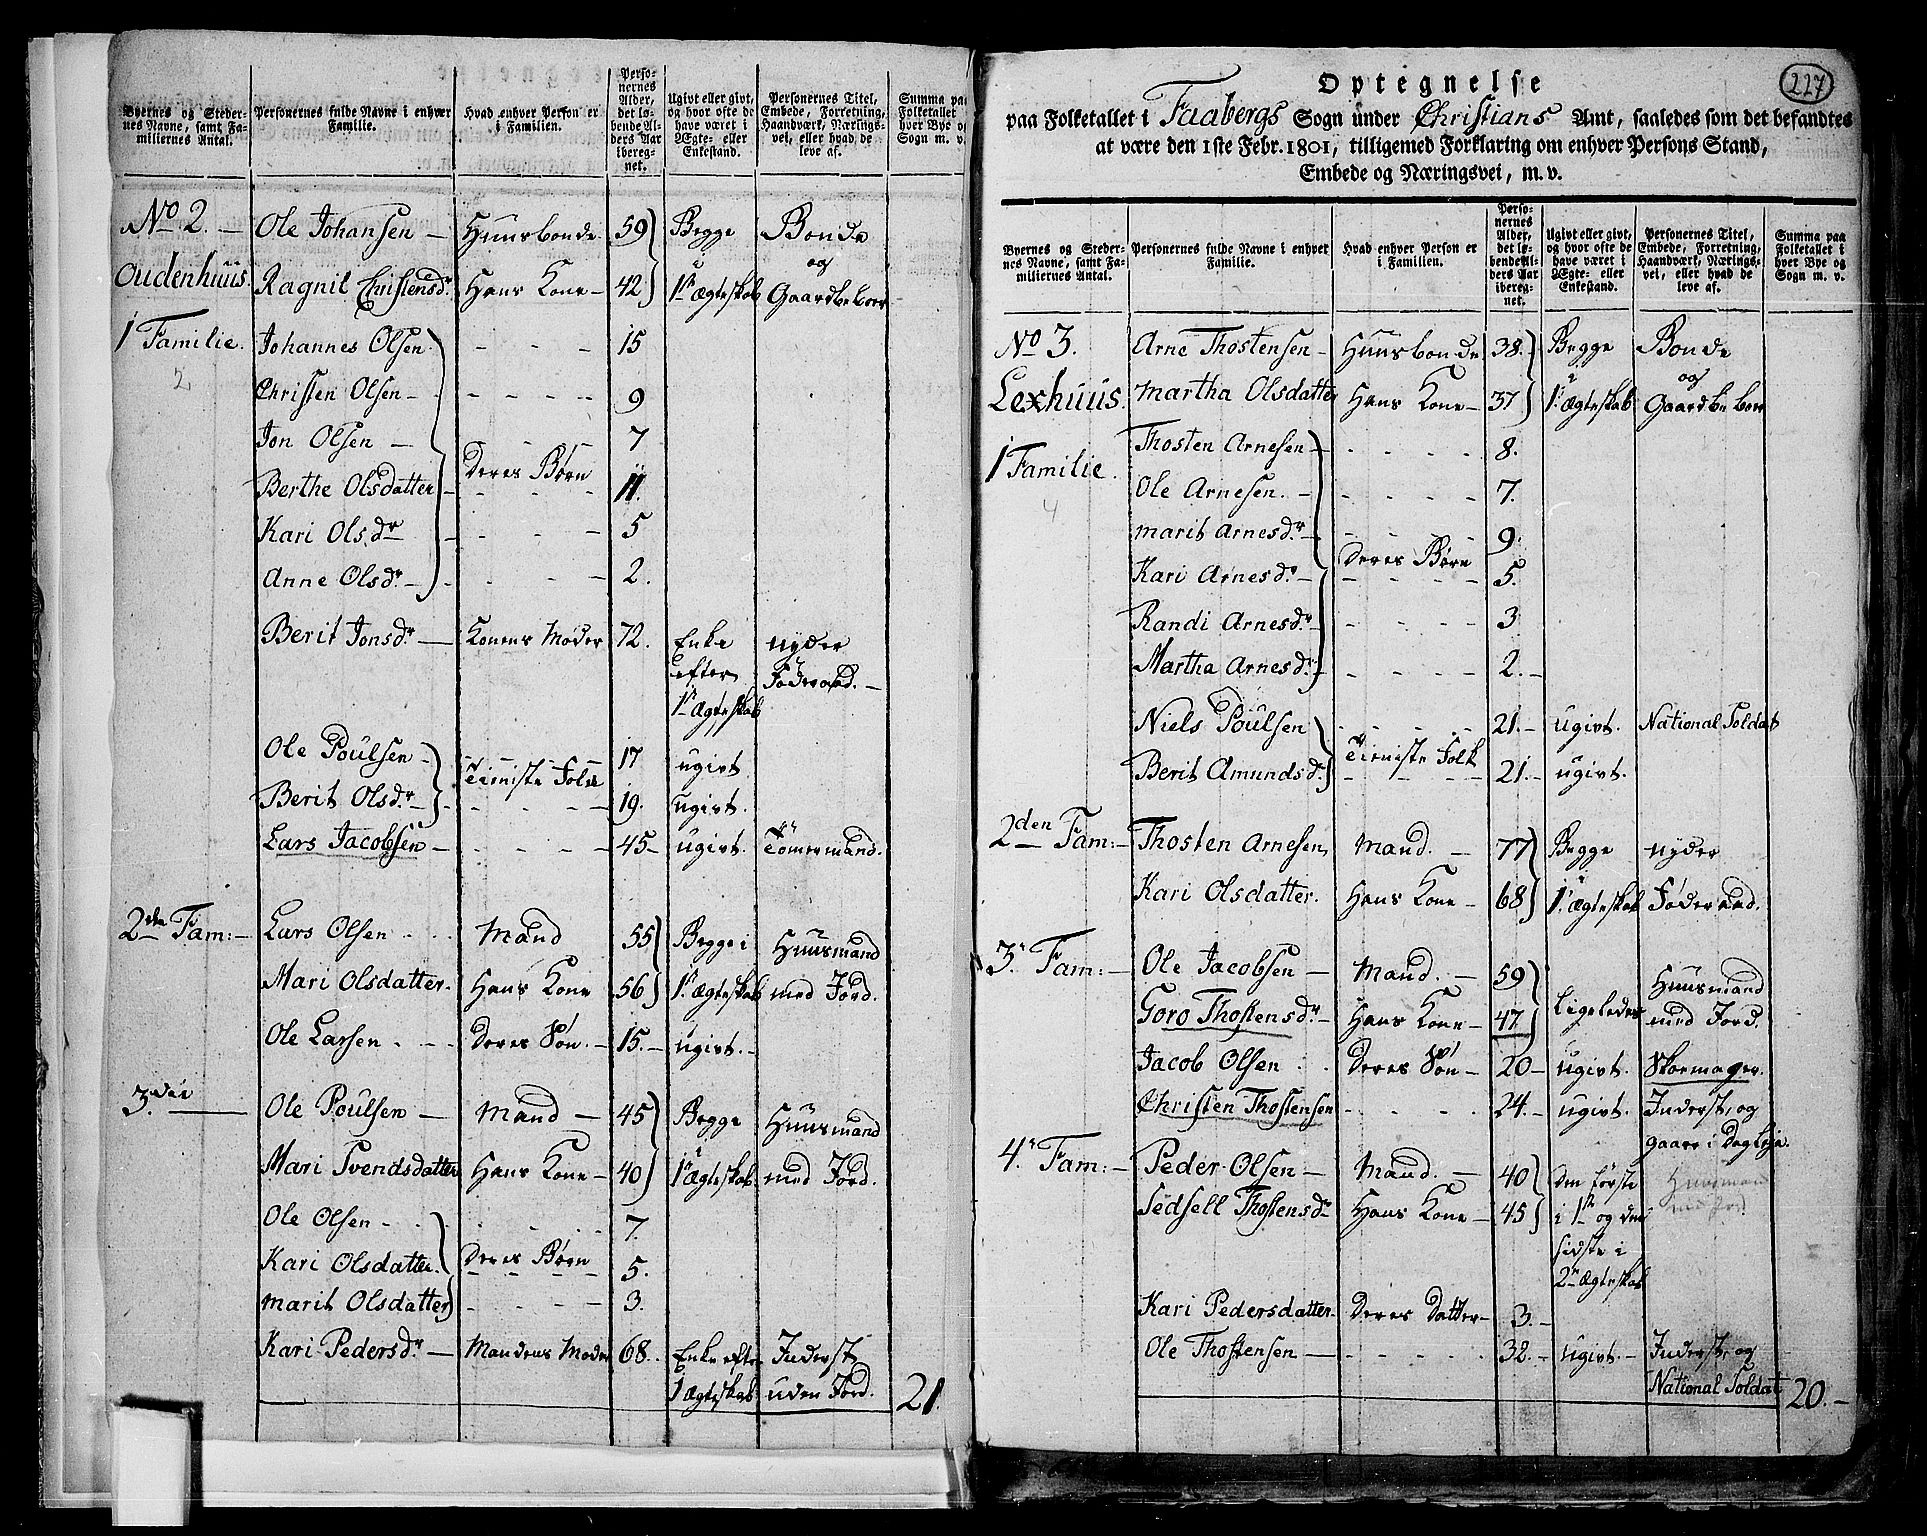 Byernes og Steder-
nes Navne, samt Fa-
miliernes Antal.
Personernes fulde Navne i enhver
Familie.
Hvad enhver Person er
i Familien.
Perso-
nernes
Alder,
det lø-
bende Al-
ders Aar
iberegnet.
Ugivt eller givt,
og hvor ofte de
have været i
Ægte- eller
Enkestand.
Personernes Titel,
Embede, Forretning,
Haandværk, Nærings-
vei, eller hvad de
leve af.
Summa paa
Folketallet i
hver By og
Sogn m. v.
No 2. Ole Johansen Huusbonde 59 Begge Bonde
Oudenhuus. Ragnil Christensdr. Hans Kone 42 i 1ste Ægteskab og Gaardbeboer
1 Familie. Johannes Olsen 15
2 Christen Olsen 9
Jon Olsen 7
Berthe Olsdatter Deres Børn 11.
Kari Olsdr 5
Anne Olsdr. 2.
Berit Jonsdr. Konens Moder 72. Enke nyder
efter Føderaad.
1te Ægteskab
Ole Poulsen 17 ugivt
Berit Olsdr. Tieniste Folk 19. ugivt.
Lars Jacobsen 45 ugivt. Tømermand.
2den Fam: Lars Olsen Mand 55 Begge i Huusmand
Mari Olsdatter. Hans Kone 56 1te Ægteskab med Jord.
Ole Larsen Deres Søn. 15. ugivt.
3die Ole Poulsen Mand 45 Begge Huusmand
Mari Svendsdatter Hans Kone 40 1te Ægteskab. med Jord.
Ole Olsen 7.
Kari Olsdatter. Deres Børn 5.
Marit Olsdatter 3.
Kari Pedersdr. Mandens Moder 68. Enke efter Inderst
1 Ægteskab uden Jord. 21.
227
Optegnelse
paa Folketallet i Faabergs Sogn under Christians Amt, saaledes som det befandtes
at være den 1ste Febr. 1801, tilligemed Forklaring om enhver Persons Stand,
Embede og Næringsvei, m. v.
Byernes og Steder-
nes Navne, samt Fa-
miliernes Antal.
Personernes fulde Navne i enhver
Familie.
Hvad enhver Person er
i Familien.
Perso-
nernes
Alder,
det lø-
bende Al-
ders Aar
iberegnet.
Ugivt eller givt,
og hvor ofte de
have været i
Ægte- eller
Enkestand.
Personernes Titel,
Embede, Forretning,
Haandværk, Nærings-
vei, eller hvad de
leve af.
Summa paa
Folketallet i
hver By og
Sogn m. v.
No 3. Arne Thostensen Huusbonde 38. Begge Bonde
Lexhuus. Martha Olsdatter Hans Kone 37 i 1. Ægteskab og Gaardbeboer
1 Familie. Thosten Arnesen 8.
4 Ole Arnesen. 7.
Marit Arnesdr. 9.
Kari Arnesdr. Deres Børn 5.
Randi Arnesdr. 3
Martha Arnesdr. 2.
Niels Poulsen 21. ugivt. National Soldat
Berit Amundsdr. Tieniste Folk 21. ugivt.
2den Fam: Thosten Arnesen Mand. 77 Begge nyder
Kari Olsdatter. Hans Kone 68 i 1. Ægteskab Føderaad.
3. Fam: Ole Jacobsen Mand. 59 Huusmand
Goro Thostensdr. Hans Kone 47 Ligeledes med Jord.
Jacob Olsen Deres Søn 20 ugivt. Skoemager.
Christen Thostensen 24. ugivt. Inderst, og
gaaer i Dagleje.
4. Fam: Peder Olsen Mand. 40 Den første Huusmand
Sedsell Thostensdr Hans Kone 45 i 1te og den med Jord
sidste i
2. Ægteskab
Kari Pedersdatter. Deres Datter 3.
Ole Thostensen 32. ugivt. Inderst, og
National Soldat 20.